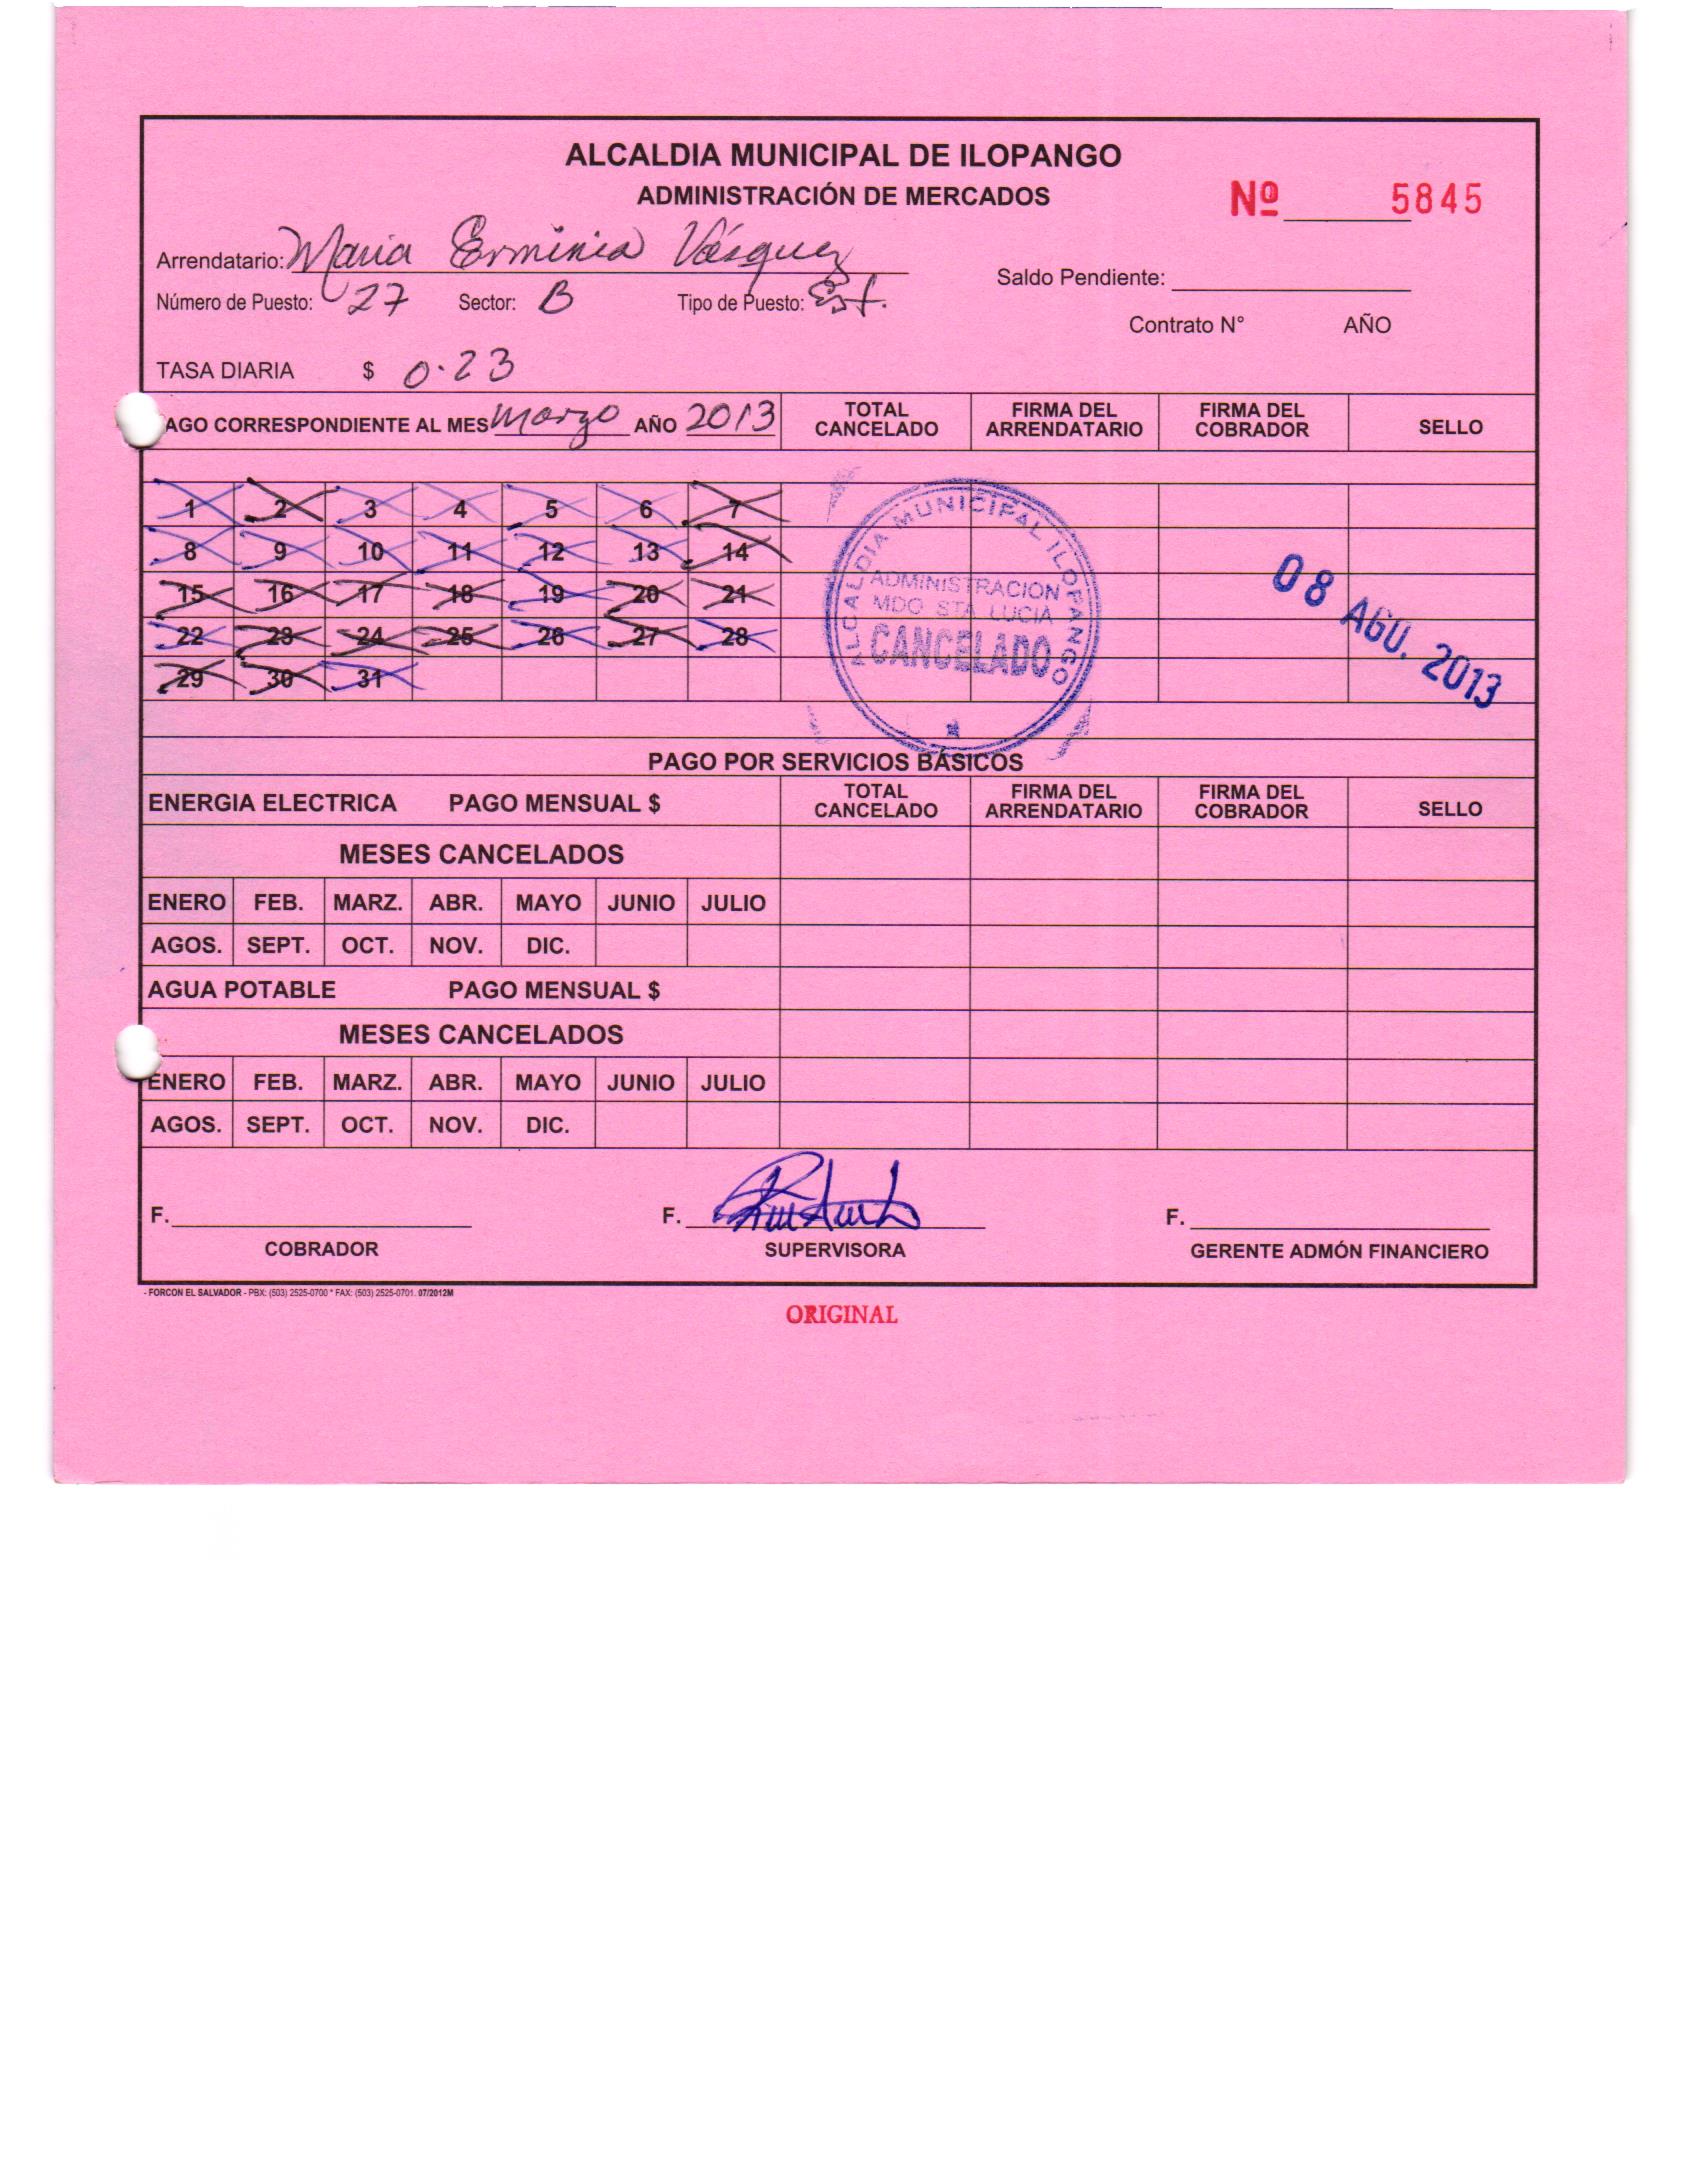 ALCALDIA MUNICIPAL DE ILOPANGO
ADMINISTRACIÓN DE MERCADOS
Nº 5845
Arrendatario: Maria Erminia Vásquez
Saldo Pendiente:
Número de Puesto: 27 Sector: B Tipo de Puesto: Est.
Contrato N° AÑO
TASA DIARIA $ 0.23
AGO CORRESPONDIENTE AL MES marzo AÑO 2013 TOTAL CANCELADO FIRMA DEL ARRENDATARIO FIRMA DEL COBRADOR SELLO
1 2 3 4 5 6 7
8 9 10 11 12 13 14
15 16 17 18 19 20 21
22 23 24 25 26 27 28
29 30 31
ALCALDIA MUNICIPAL ILOPANGO
ADMINISTRACION
MDO STA LUCIA
CANCELADO
08 AGO. 2013
PAGO POR SERVICIOS BÁSICOS
ENERGIA ELECTRICA PAGO MENSUAL $ TOTAL CANCELADO FIRMA DEL ARRENDATARIO FIRMA DEL COBRADOR SELLO
MESES CANCELADOS
ENERO FEB. MARZ. ABR. MAYO JUNIO JULIO
AGOS. SEPT. OCT. NOV. DIC.
AGUA POTABLE PAGO MENSUAL $
MESES CANCELADOS
ENERO FEB. MARZ. ABR. MAYO JUNIO JULIO
AGOS. SEPT. OCT. NOV. DIC.
F. F. F.
COBRADOR SUPERVISORA GERENTE ADMÓN FINANCIERO
- FORCON EL SALVADOR - PBX: (503) 2525-0700 * FAX: (503) 2525-0701. 07/2012M
ORIGINAL